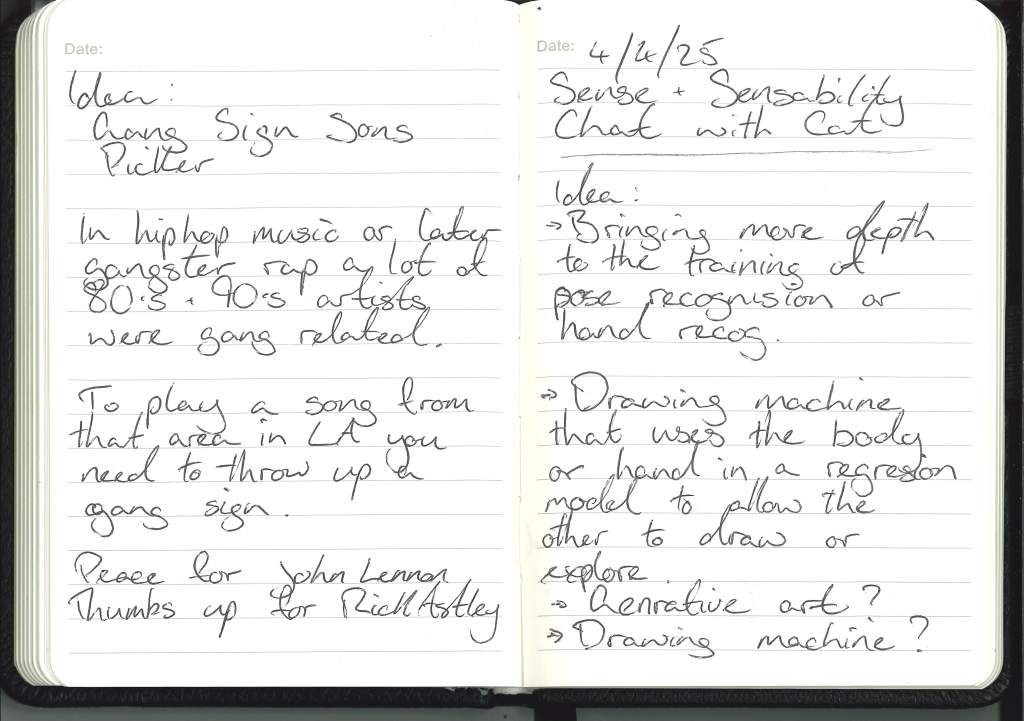 Date:
Idea:
Gang Sign Sons
Picker
In hiphop music or later
gangster rap a lot of
80's + 90's artists
were gang related.
To play a song from
that area in LA you
need to throw up a
gang sign.
Peace for John Lennon
Thumbs up for Rick Astley
Date: 4/4/25
Sense + Sensability
Chat with Cat
Idea:
→ Bringing more depth
to the training of
pose recognision or
hand recog.
→ Drawing machine
that uses the body
or hand in a regresion
model to allow the
other to draw or
explore.
→ Genrative art?
→ Drawing machine?